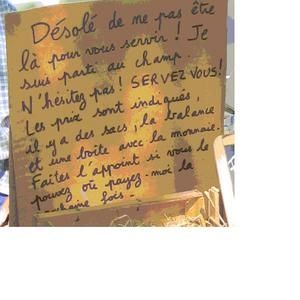 Désolé de ne pas être
là pour vous servir ! Je
suis parti au champ.
N'hésitez pas ! SERVEZ VOUS !
Les prix sont indiqués,
il y a des sacs, la balance
et une boîte avec la monnaie.
Faites l'appoint si vous le
pouvez où payez-moi la
prochaine fois.